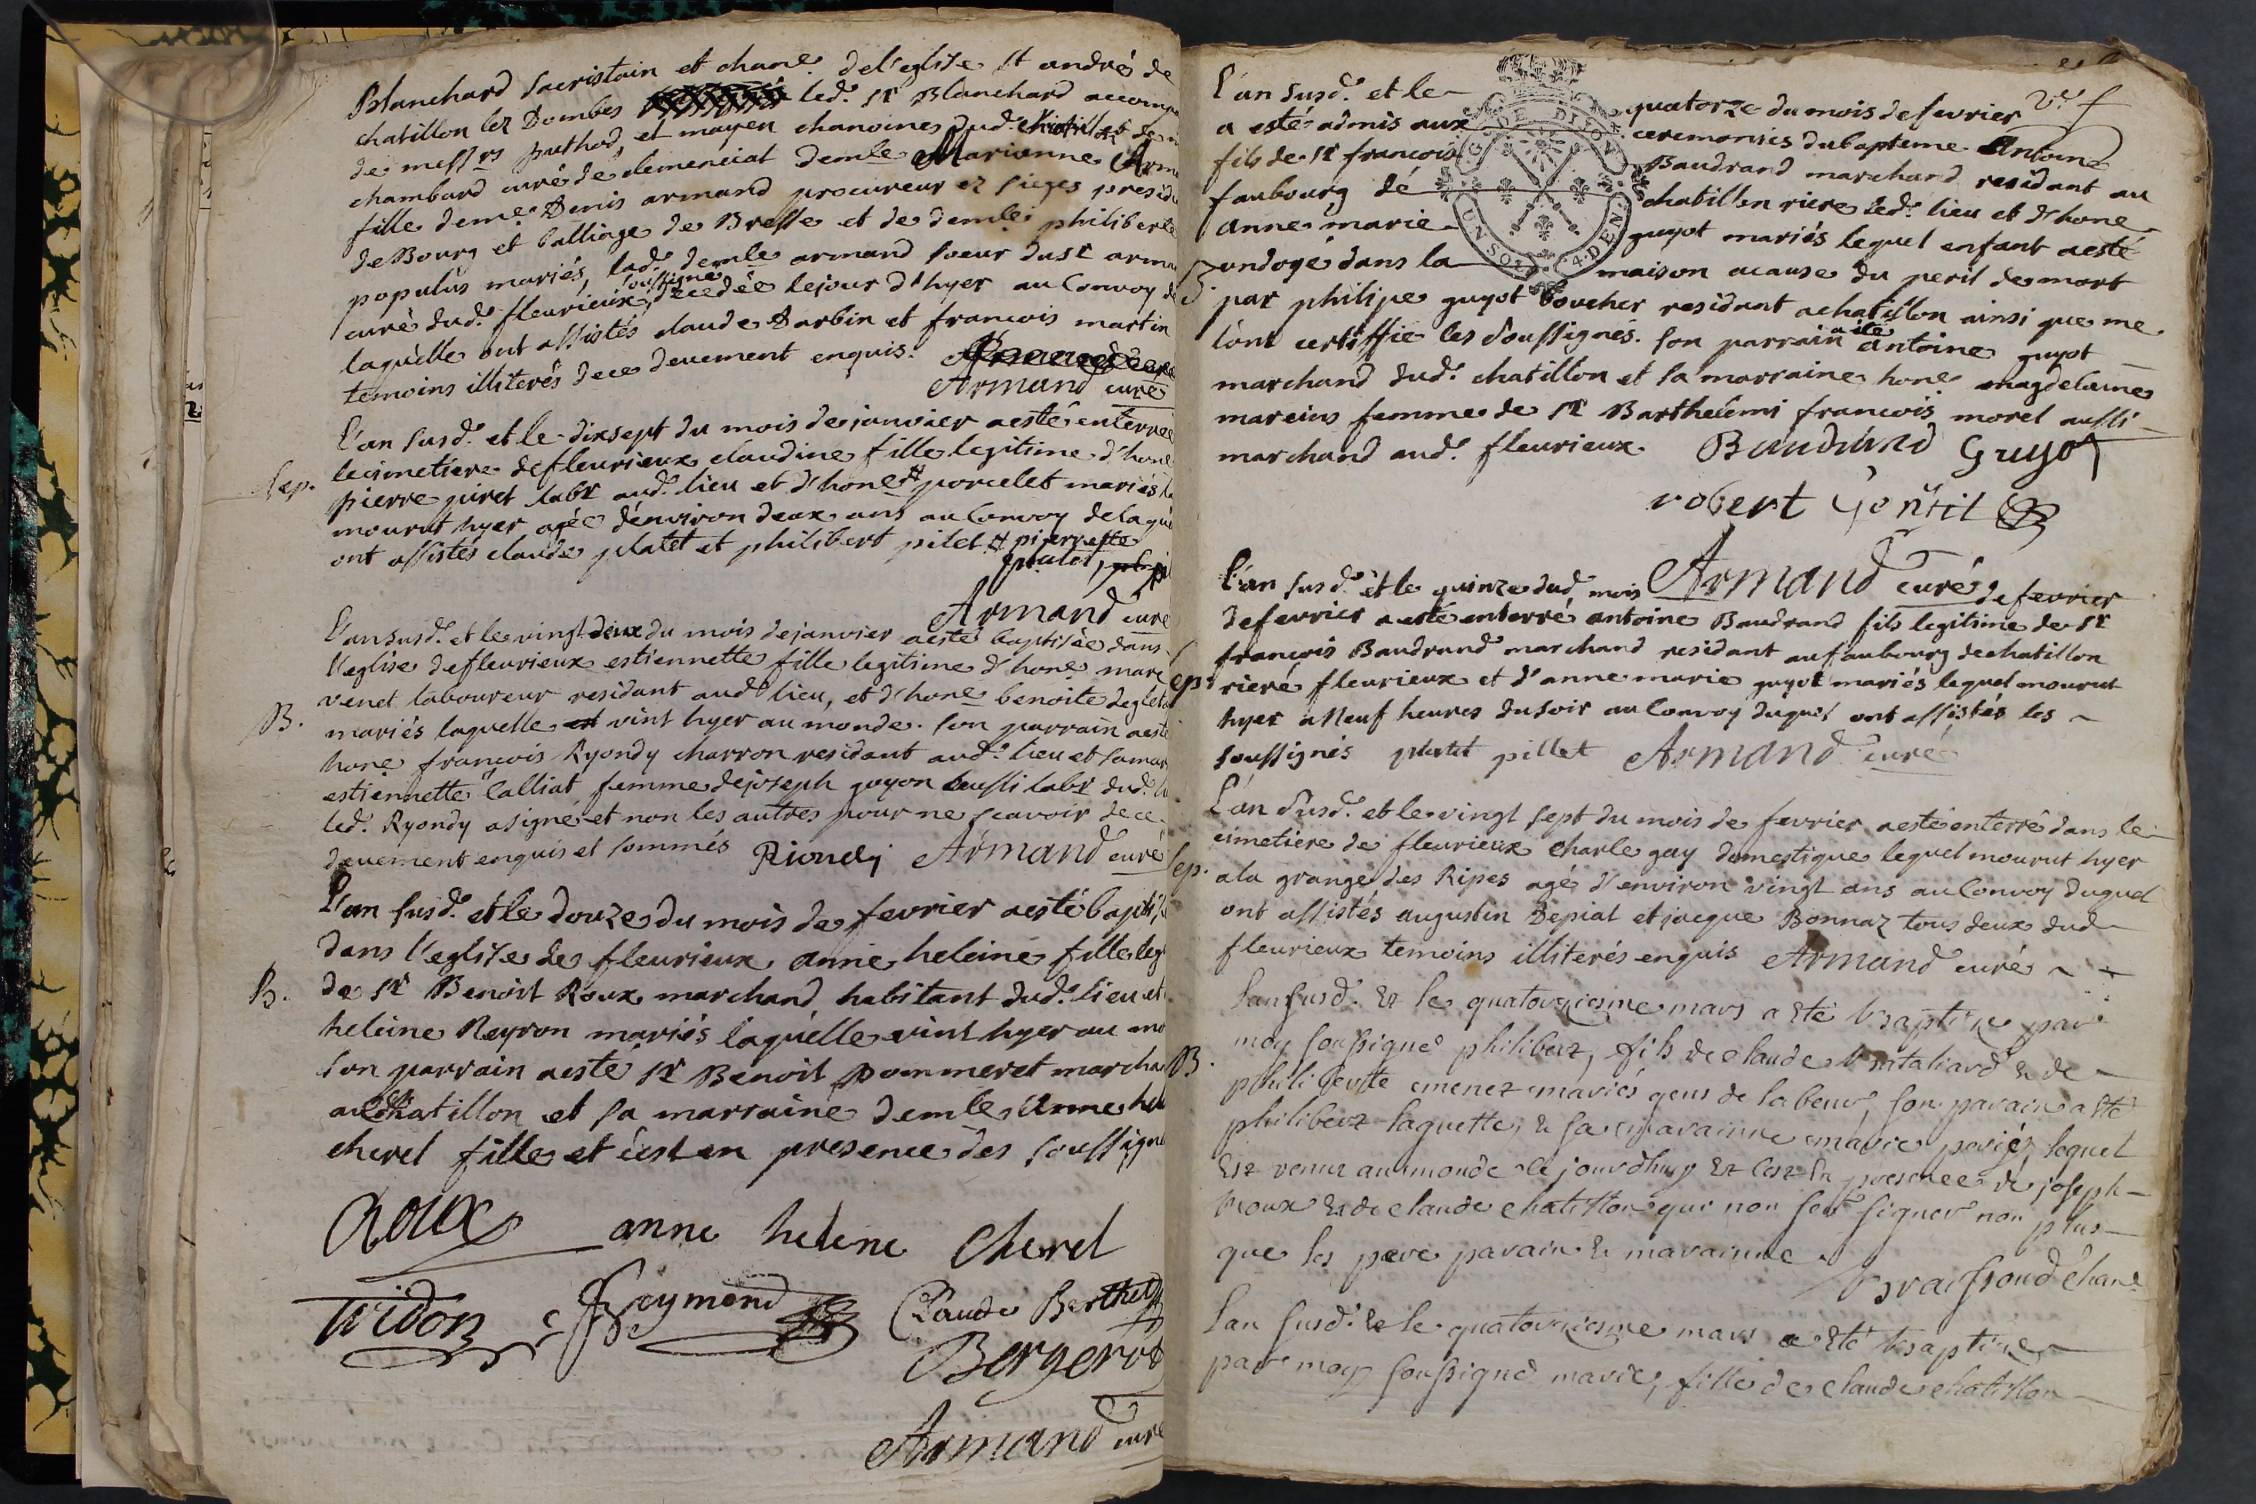 Blanchard sacristain et chane. de l'eglise st andré de
chatillon lez Dombes led. sr Blanchard accomp
de messrs puthod, et mayen chanoines dud. chatillon
chambard curé de clemenciat demle Marianne Arm
fille de me Denis armand procureur ez sieges presid
de Bourg et balliage de Bresse et de demle philiberte
populus mariés, lad. demle armand soeur du sr arma
curé dud. fleurieux soussigné decedée le jour d'hyer au Convoy de
laquelle ont assistés claude Darbin et francois martin
temoins illiterés de ce deuement enquis.
Armand curé
L'an susd. et le dixsept du mois de janvier a esté enterrée
Sep. le cimetiere de fleurieux claudine fille legitime d'hone
pierre piret labr aud. lieu et d'hone # porcelet mariés
mourut hyer agée d'environ deux ans au Convoy de laque
ont assistés claude platet et philibert pilet # pierrette
platet,
Armand curé
L'an susd. et le vingt deux du mois de janvier a esté baptisée dans
l'eglise de fleurieux estiennette fille legitime d'hone marc
venet laboureur residant aud. lieu, et d'hone benoite
B. mariés laquelle vint hyer au monde. son parrain a esté
hone françois Ryondy charron residant aud. lieu et sa mar
estiennette Calliat femme de joseph guyon aussi labr dud.
led. Ryondy a signé et non les autres pour ne scavoir de ce
deuement enquis et sommés Riondy Armand curé
L'an susd. et le douze du mois de fevrier a esté baptis
dans l'eglise de fleurieux anne heleine fille leg
B. de sr Benoit Roux marchand habitant dud. lieu et
heleine Reyron mariés laquelle vint hyer au mo
son parrain a esté sr Benoit pommeret marcha
chatillon et sa marraine demle Anne hel
cherel fille et c'est en presence des soussigné
Roux anne helene Cherel
Tridon Reymond Claude Berthet
Bergerot
Armand curé
L'an susd. et le quatorze du mois de fevrier
a esté admis aux ceremonies du baptême Antoine
fils de sr françois Baudrand marchand residant au
faubourg de chatillon riere led. lieu et d'hone
anne marie guyot mariés lequel enfant a esté
ondoyé dans la maison a cause du peril de mort
par philipe guyot boucher residant a chatillon ainsi que me
l'ont certiffié les soussignés. son parrain a été antoine guyot
marchand dud. chatillon et sa marraine hone magdelaine
mareins femme de sr Barthelemi francois morel aussi
marchand aud. fleurieux Baudrand Guyot
robert Gentil
Armand curé
L'an susd. et le quinze dud. mois de fevrier
de fevrier a esté enterré antoine Baudrand fils legitime de sr
françois Baudrand marchand residant au faubourg de chatillon
Sep. riere fleurieux et d'anne marie guyot mariés lequel mourut
hyer a neuf heures du soir au Convoy duquel ont assistés les
soussignés platet pillet Armand curé
L'an susd. et le vingt sept du mois de fevrier a esté enterré dans le
cimetiere de fleurieux charle gay domestique lequel mourut hyer
Sep. a la grange des Ripes agé d'environ vingt ans au Convoy duquel
ont assistés augustin Depial et jacque Bonnaz tous deux dud
fleurieux temoins illiterés enquis Armand curé
Lan susd. Et le quatorziesme mars a Eté baptize par
moy soussigné philibert, fils de claude bataliard & de
B. philiberte menez mariés gens de labeur, son parain a Eté
philibert laquette, & sa maraine marie periez lequel
Est venu au monde le jourdhuy Et cest En presence de joseph
roux Et de claude chatillon qui non seu signer non plus
que les pere parain & maraine
chane
Lan susd. & le quatorziesme mars a Eté baptize
par moy soussigné marie, fille de claude chatillon